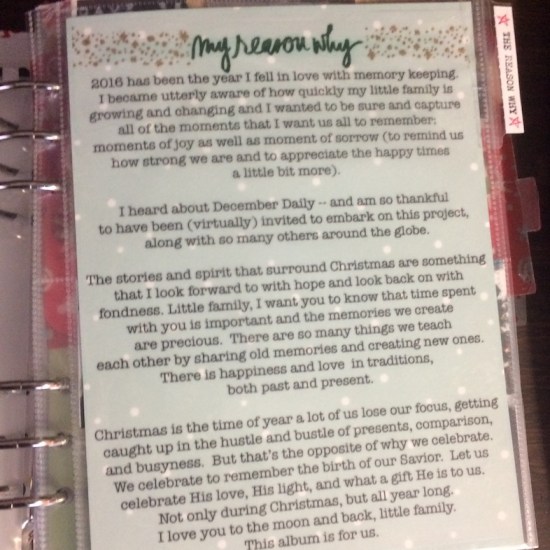 my reason why
THE REASON WHY
2016 has been the year I fell in love with memory keeping.
I became utterly aware of how quickly my little family is
growing and changing and I wanted to be sure and capture
all of the moments that I want us all to remember:
moments of joy as well as moment of sorrow (to remind us
how strong we are and to appreciate the happy times
a little bit more).
I heard about December Daily -- and am so thankful
to have been (virtually) invited to embark on this project,
along with so many others around the globe.
The stories and spirit that surround Christmas are something
that I look forward to with hope and look back on with
fondness. Little family, I want you to know that time spent
with you is important and the memories we create
are precious. There are so many things we teach
each other by sharing old memories and creating new ones.
There is happiness and love in traditions,
both past and present.
Christmas is the time of year a lot of us lose our focus, getting
caught up in the hustle and bustle of presents, comparison,
and busyness. But that's the opposite of why we celebrate.
We celebrate to remember the birth of our Savior. Let us
celebrate His love, His light, and what a gift He is to us.
Not only during Christmas, but all year long.
I love you to the moon and back, little family.
This album is for us.